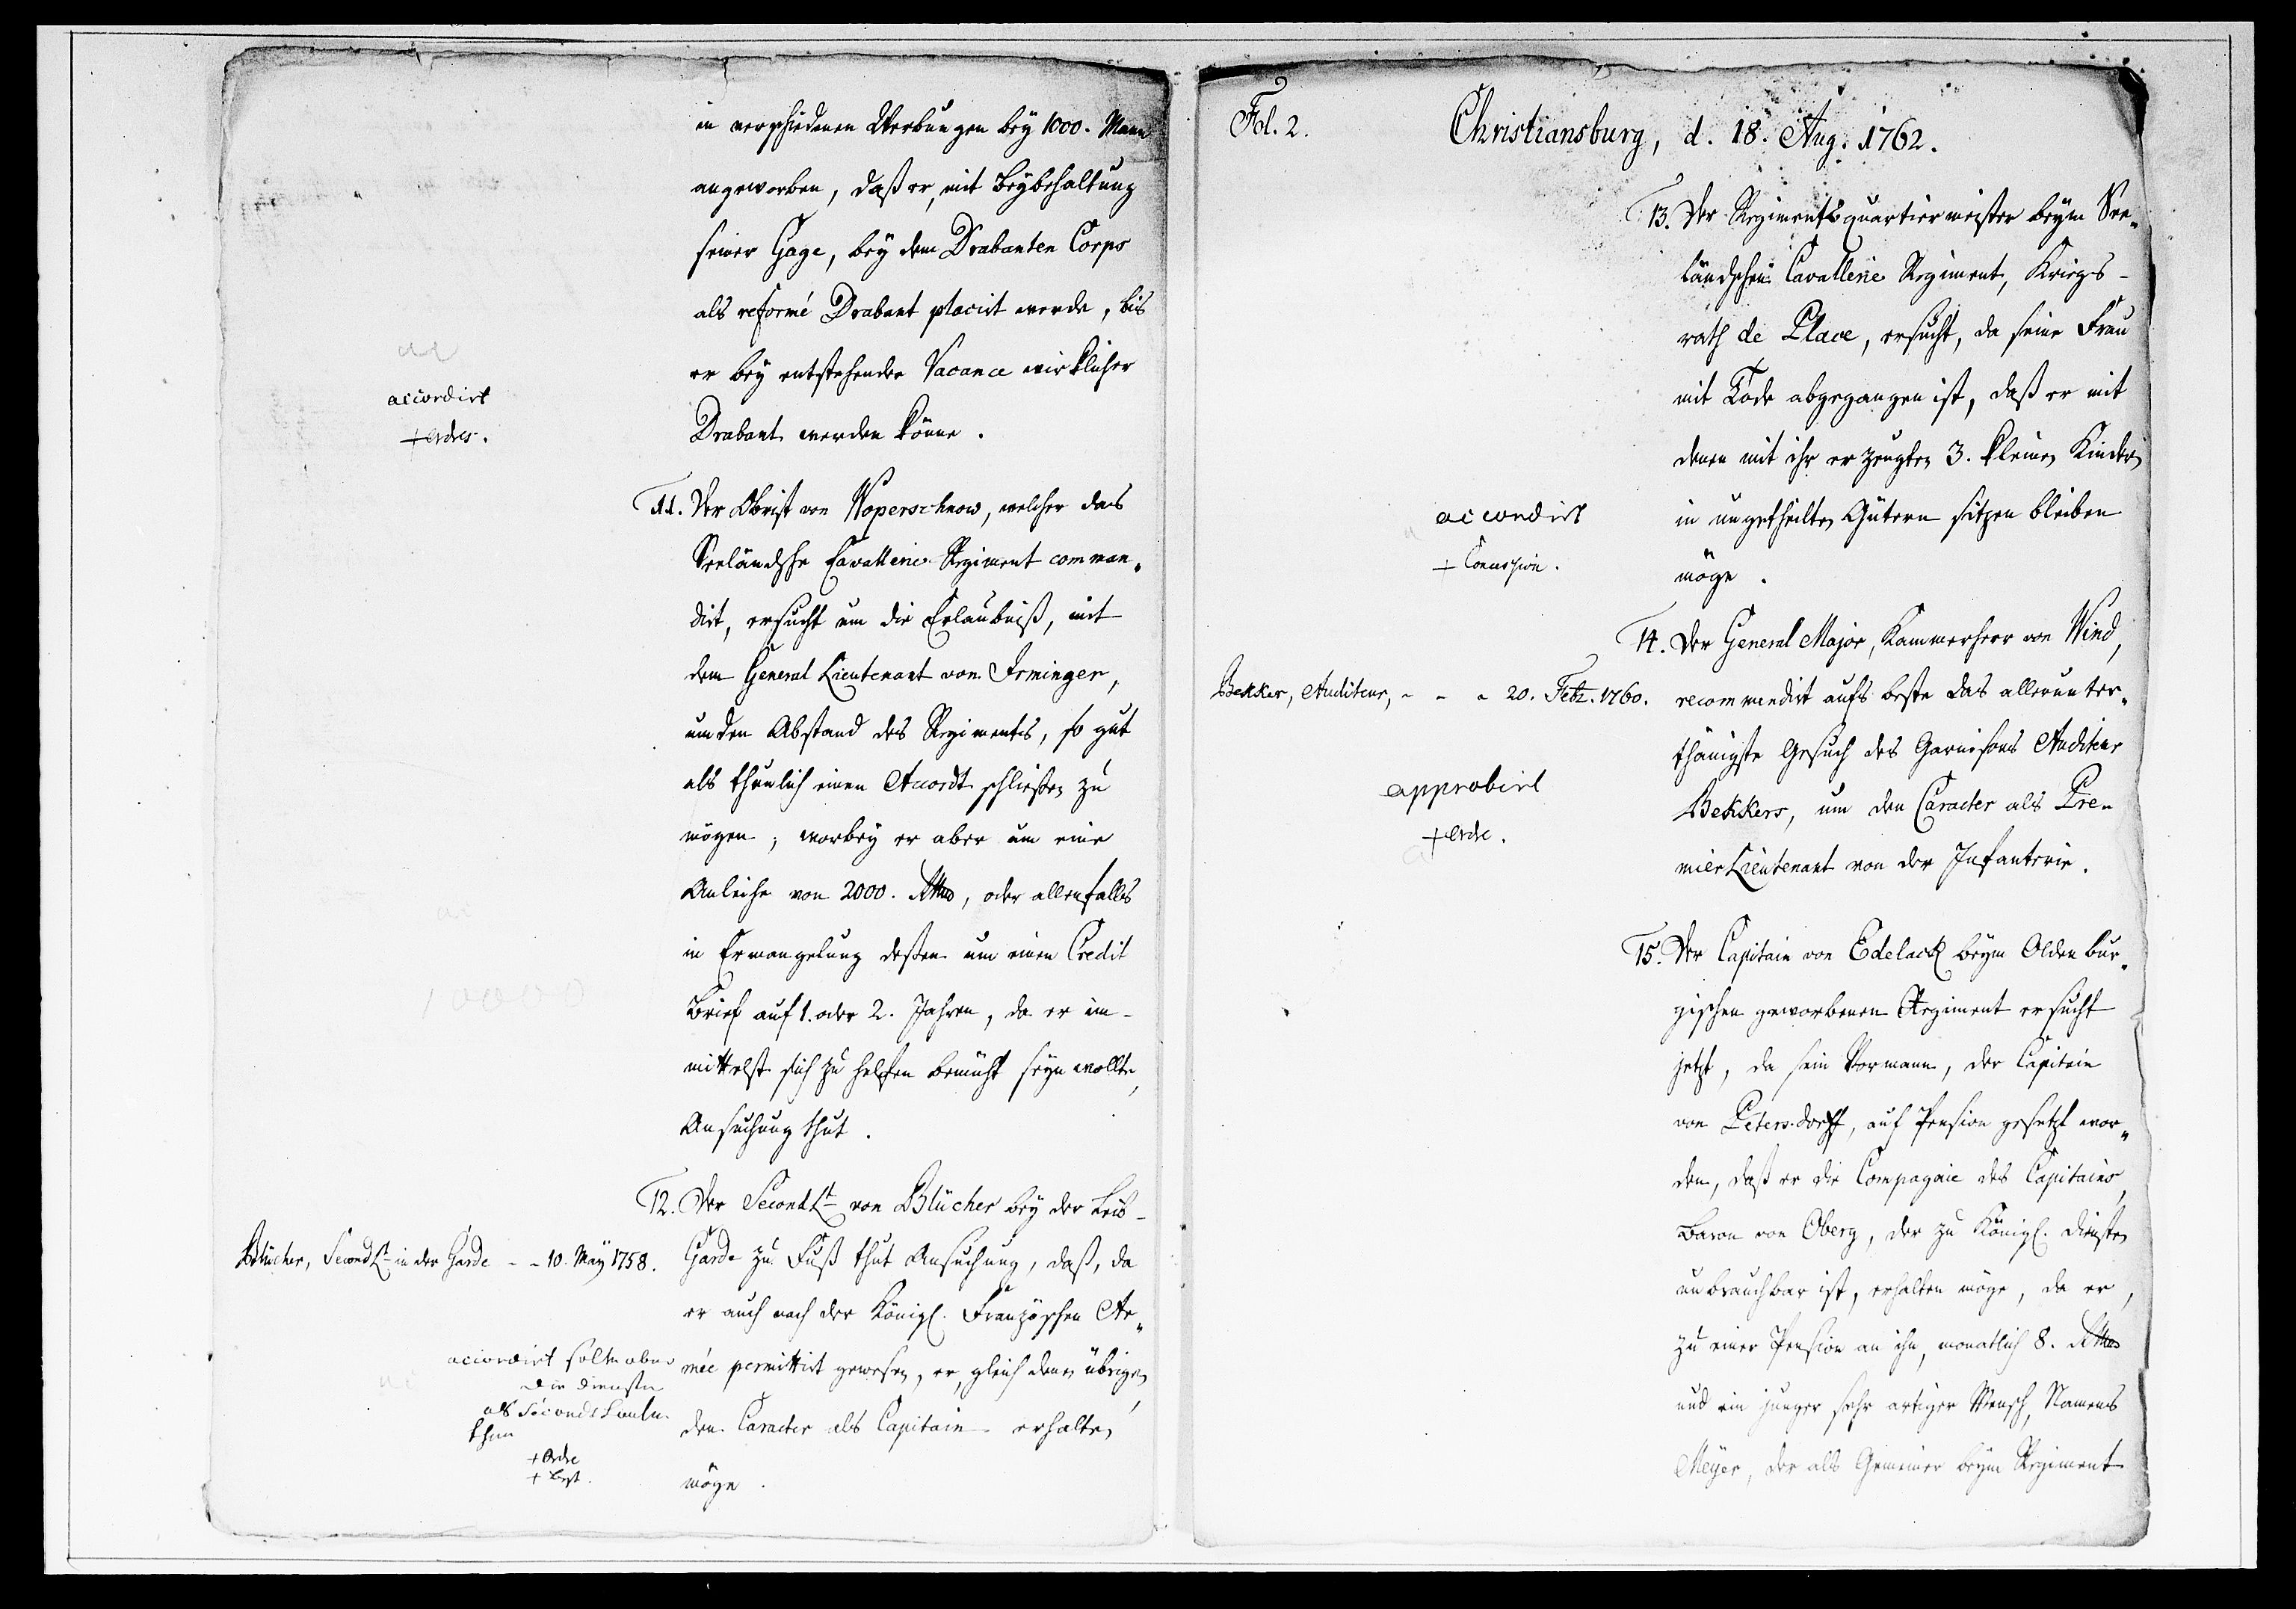 in verschiedenen Werbungen bey 1000. Mann
angeworben, daß er, mit Beybehaltung
seiner Gage, bey dem Drabanten Corps
als reformé Drabant placirt werde, bis
er bey entstehender Vacance wirklicher
Drabant werden könne.
accordirt
+ Ordres.
11. Der Obrist von Woperschnow, welcher das
Seeländsche Cavallerie Regiment comman„
dirt, ersucht um die Erlaubniß, mit
dem General Lieutenant von Irminger,
um den Abstand des Regiments, so gut
als thunlich einen Accordt schließen zu
mögen; worbey er aber um eine
Anleihe von 2000. Rthlr, oder allenfalls
in Ermangelung deßen um einen Credit
Brief auf 1. oder 2. Jahren, da er im-
mittelst sich zu helfen bemüht seyn wollte,
Ansuchung thut.
12. Der Second Lt. von Blücher bey der Leib-
Blücher, Second Lt. in der Garde - - 10. May 1758.
Garde zu Fuß thut Ansuchung, daß, da
er auch nach der Königl. Französchen Ar„
mée permittirt gewesen, er, gleich denen übrigen,
den Caracter als Capitain erhalten
möge.
accordirt solle aber
die dienste
als Second Leute.
thun
+ Ordre
+ Best.
Fol. 2.
Christiansburg, d. 18. Aug. 1762.
13. Der Regimentsquartiermeister beym See„
ländschen Cavallerie Regiment, Kriegs-
rath de Place, ersucht, da seine Frau
mit Tode abgegangen ist, daß er mit
denen mit ihr erzeugten 3. kleinen Kindern
in ungetheilten Gütern sitzen bleiben
möge.
accordirt
+ Concession.
14. Der General Major, Kammerherr von Wind,
Bekker, Auditeur, - - - 20. Febr. 1760.
recommendirt aufs beste das allerunter„
thänigste Gesuch des Garnisons Auditeur
Bekkers, um den Caracter als Pre„
mier Lieutenant von der Infanterie.
approbirt
+ Ordre.
15. Der Capitain von Edelack beym Oldenbur„
gischen geworbenen Regiment ersucht
jetzt, da sein Vormann, der Capitain
von Petersdorff, auf Pension gesetzt wor„
den, daß er die Compagnie des Capitains
Baron von Oberg, der zu Königl. Diensten
unbrauchbar ist, erhalten möge, da er,
zu einer Pension an ihn, monatlich 8. Rthlr
und ein junger sehr artiger Mensch, Namens
Meyer, der als Gemeiner beym Regiment